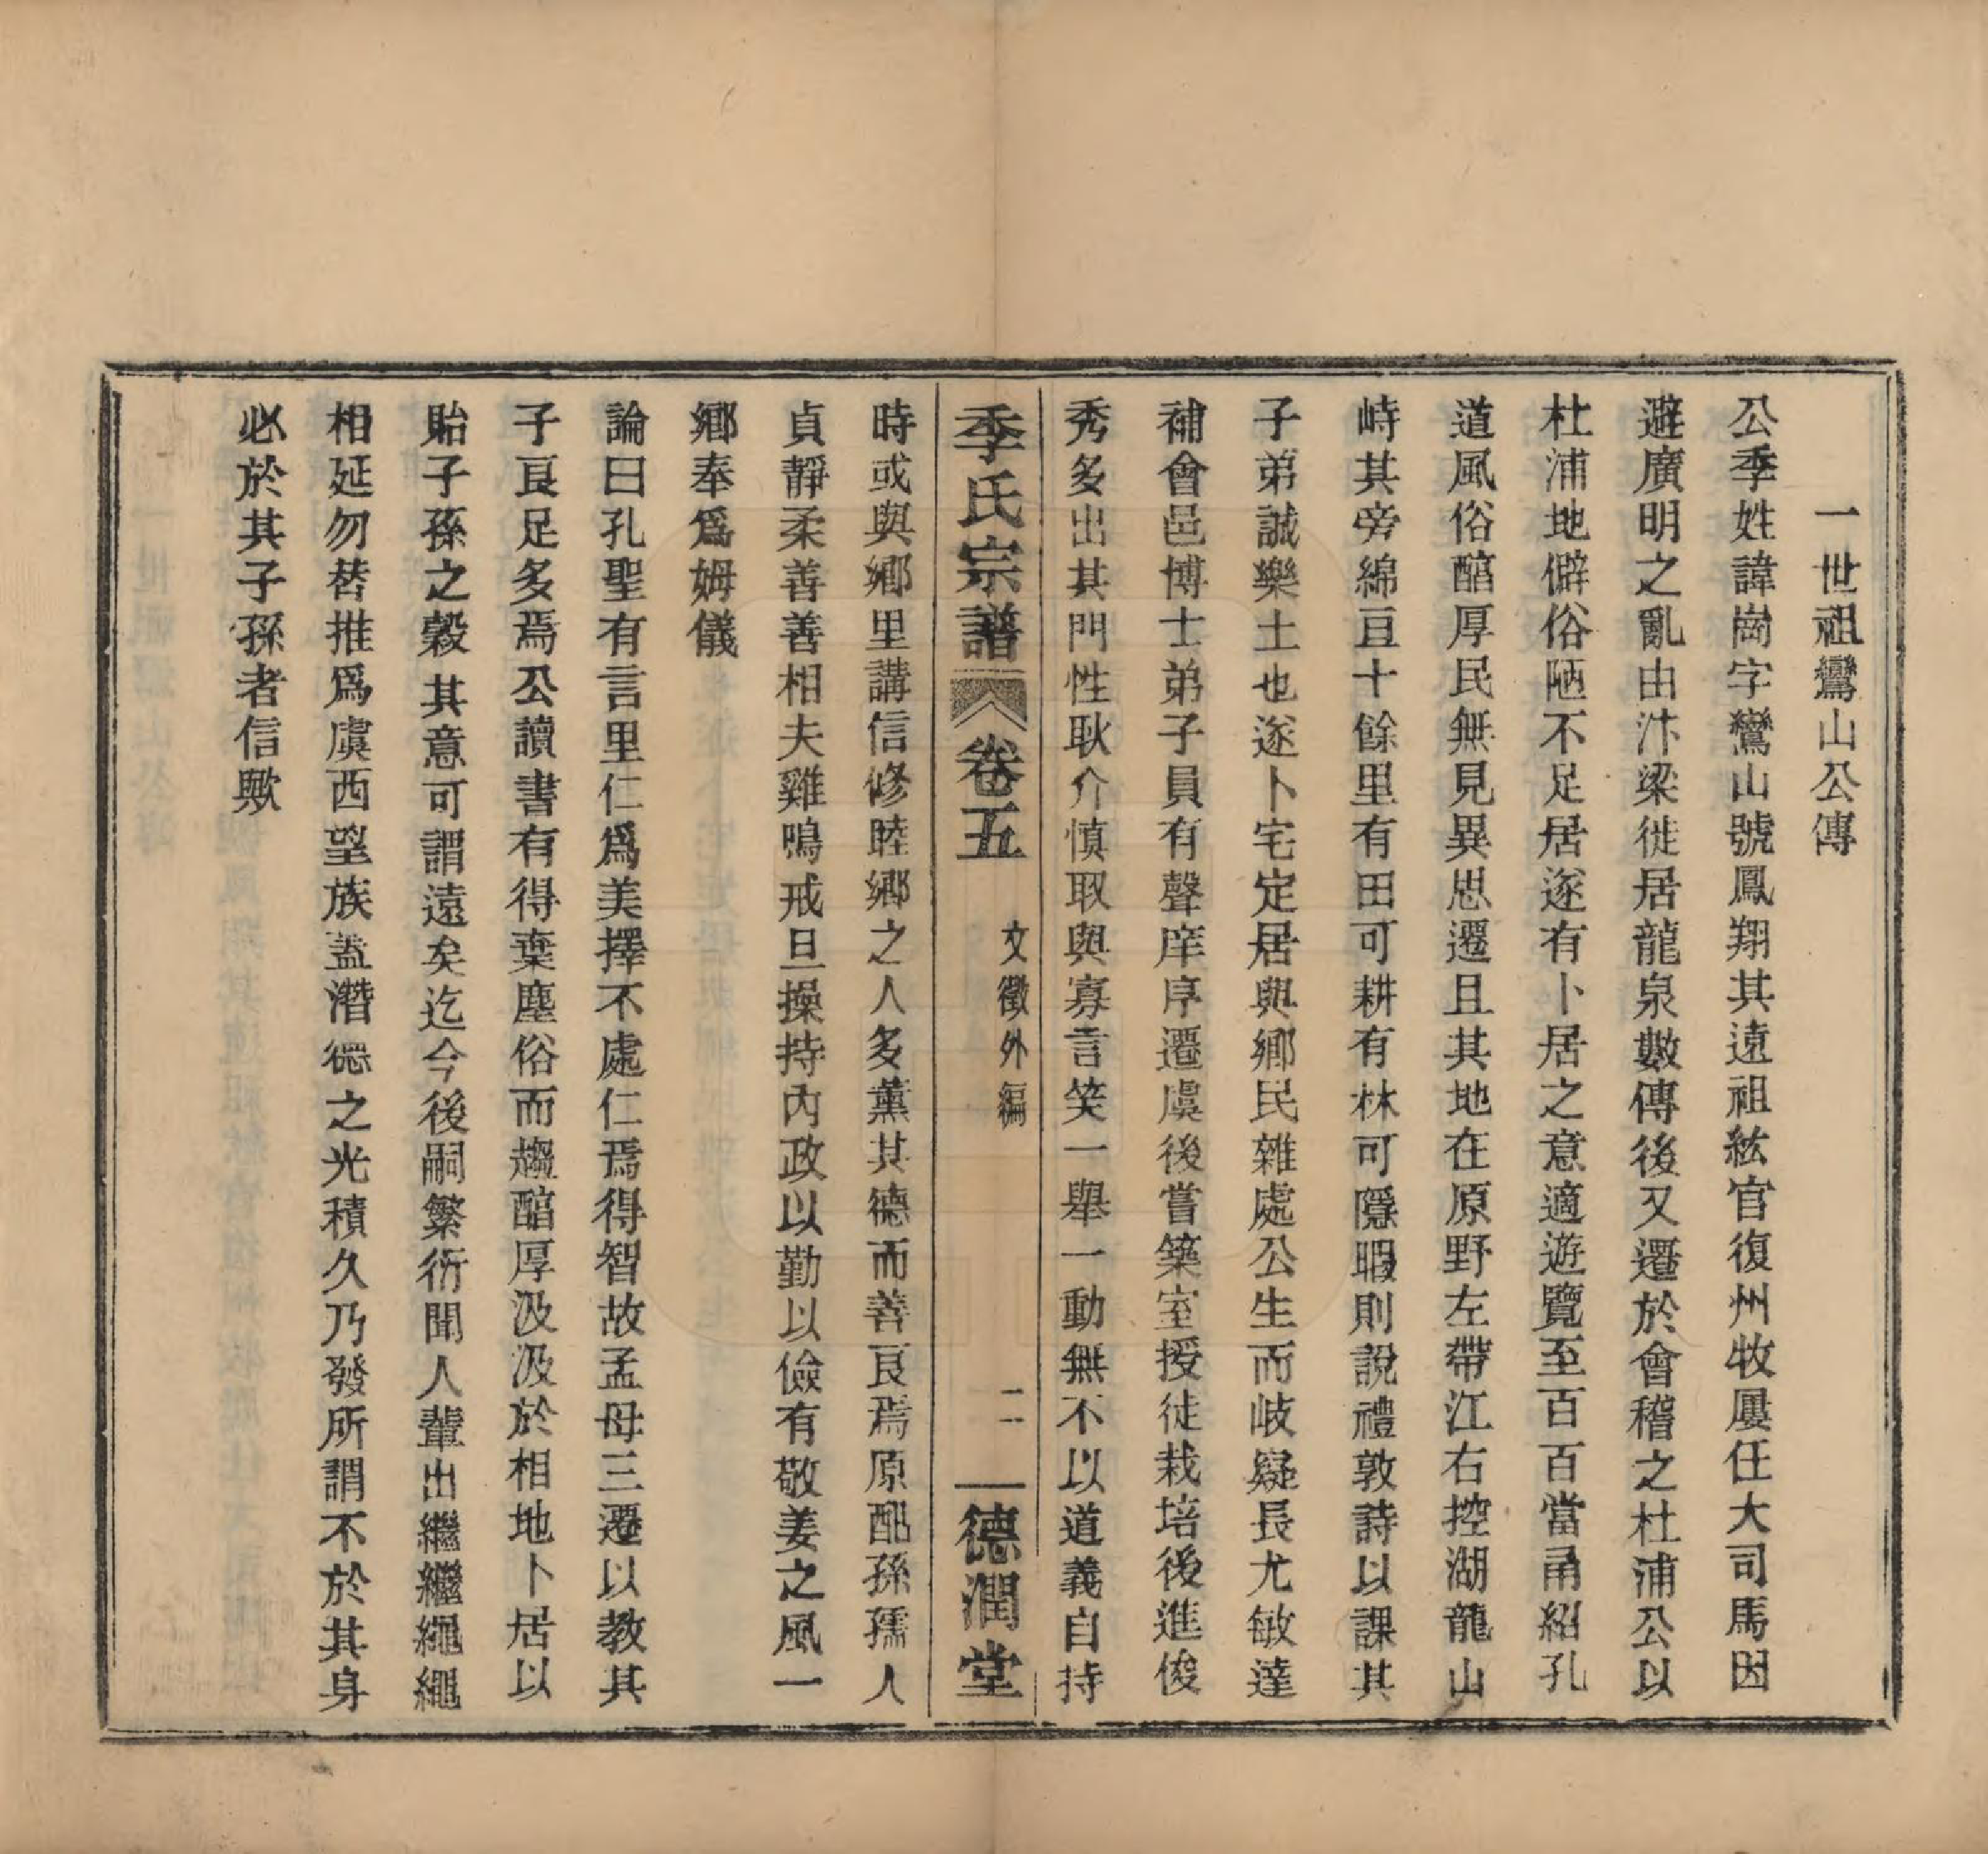 一世祖鸞山公傳
公季姓諱崗字鸞山號鳳翔其遠祖紘官復州牧屢任大司馬因
避廣明之亂由汴梁徙居龍泉數傳後又遷於會稽之杜浦公以
杜浦地僻俗陋不足居遂有卜居之意適遊覽至百百當甬紹孔
道風俗醕厚民無見異思遷且其地在原野左帶江右控湖龍山
峙其旁綿亘十餘里有田可耕有林可隱暇則說禮敦詩以課其
子弟誠樂土也遂卜宅定居與鄉民雜處公生而岐嶷長尤敏達
補會邑博士弟子員有聲庠序遷虞後嘗築室授徒栽培後進俊
秀多出其門性耿介慎取與寡言笑一舉一動無不以道義自持
季氏宗譜 卷五 文徵外編 二 德潤堂
時或與鄉里講信修睦鄉之人多薰其德而善良焉原配孫孺人
貞靜柔善善相夫雞鳴戒旦操持內政以勤以儉有敬姜之風一
鄉奉爲姆儀
論曰孔聖有言里仁爲美擇不處仁焉得智故孟母三遷以教其
子良足多焉公讀書有得棄塵俗而趨醕厚汲汲於相地卜居以
貽子孫之穀其意可謂遠矣迄今後嗣繁衍聞人輩出繼繼繩繩
相延勿替推爲虞西望族蓋潛德之光積久乃發所謂不於其身
必於其子孫者信歟